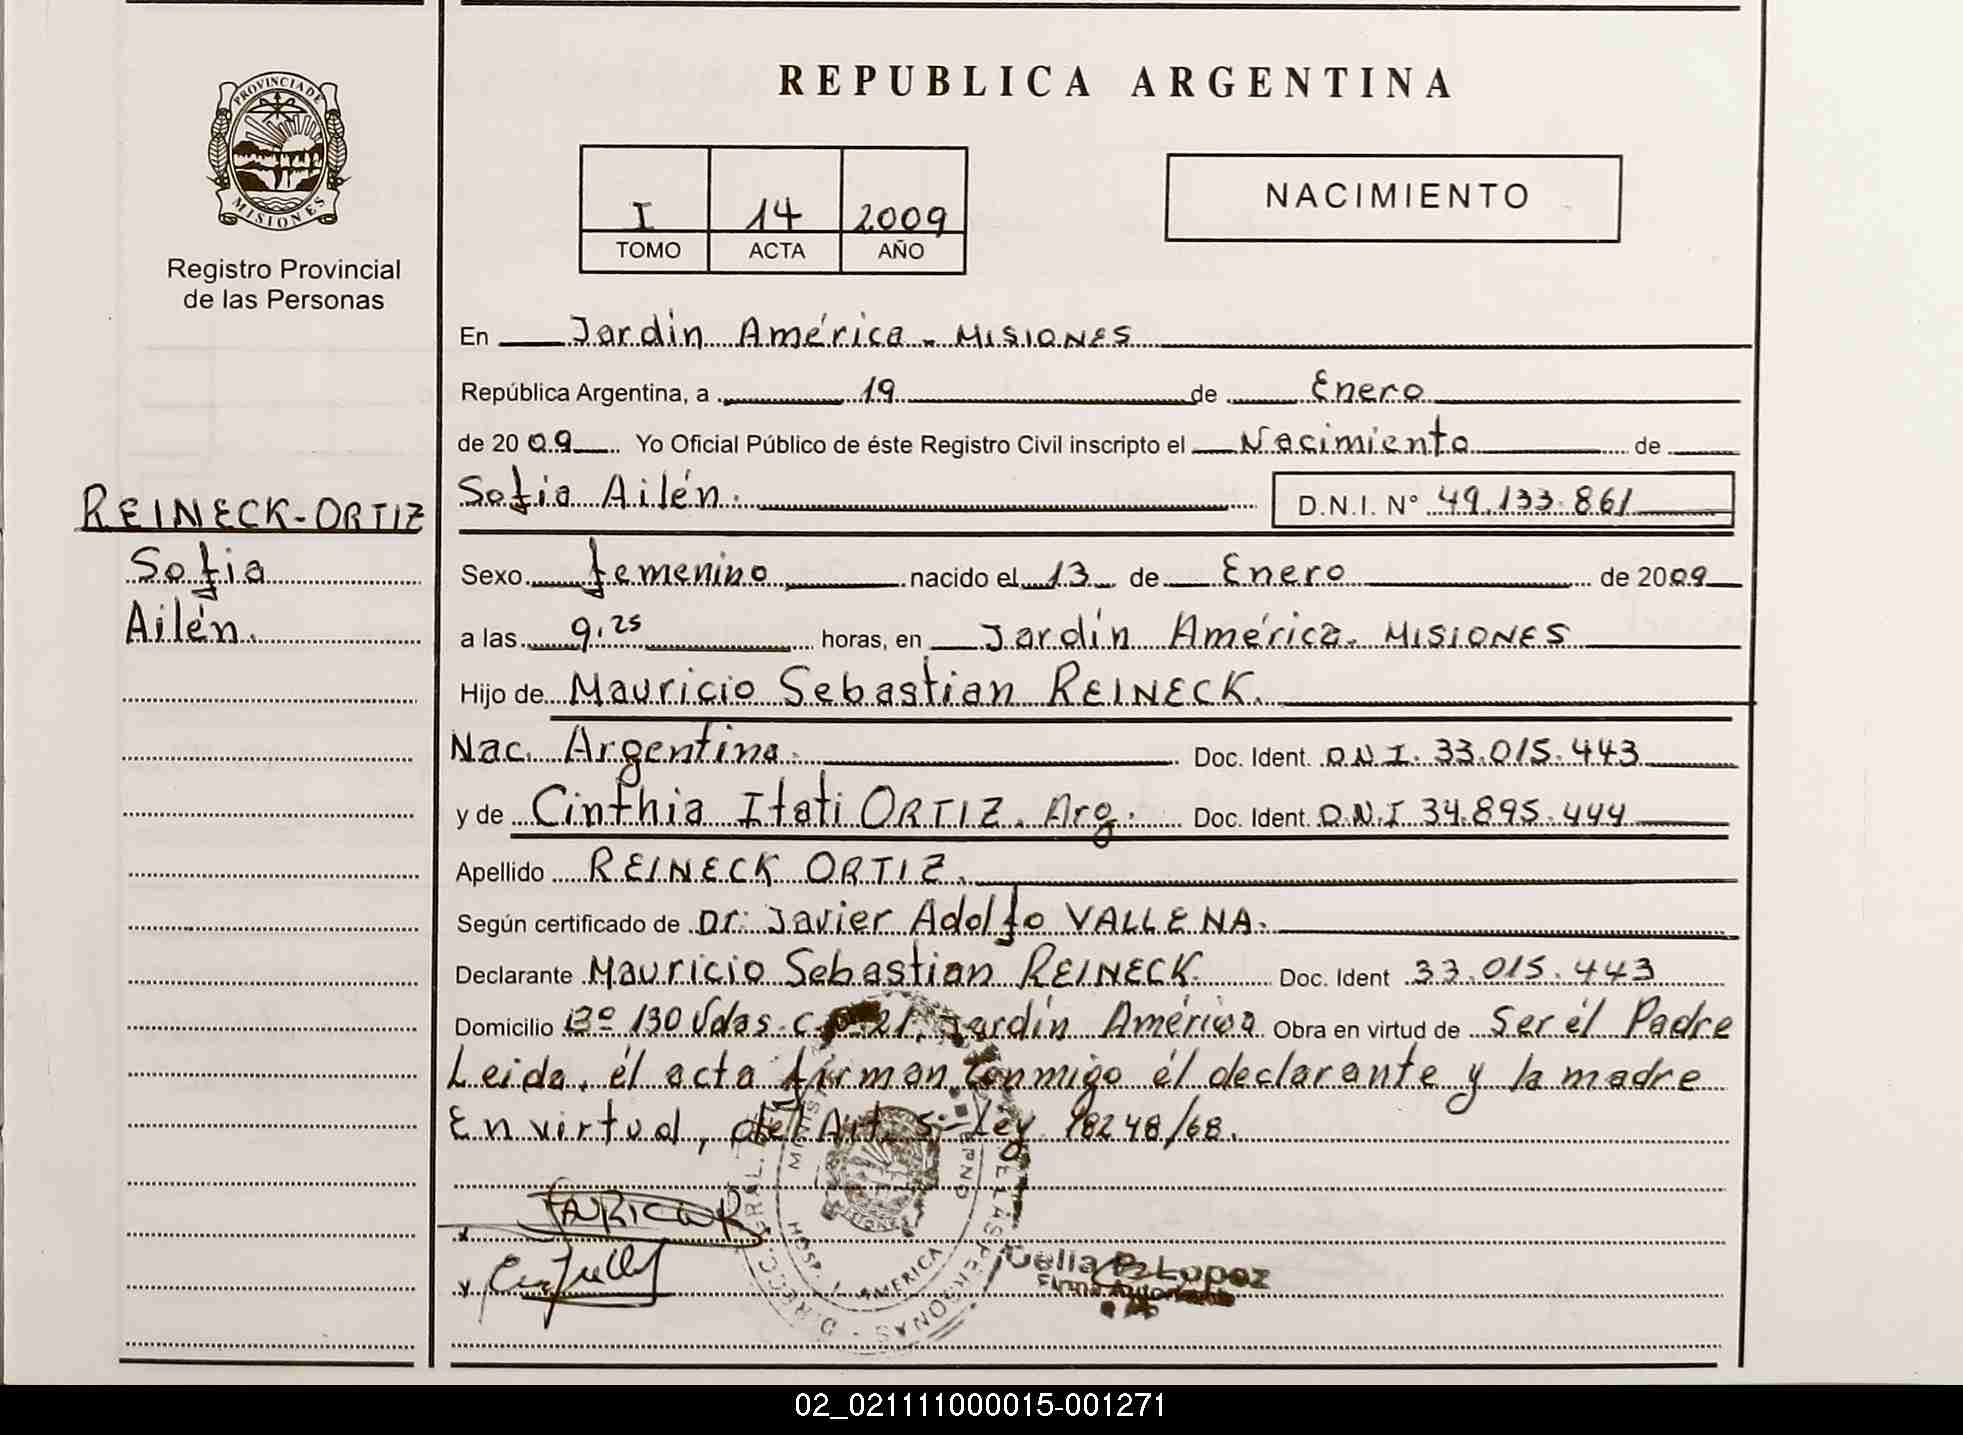 PROVINCIA DE
MISIONES
Registro Provincial
de las Personas
REINECK-ORTIZ
Sofia
Ailén.
REPUBLICA ARGENTINA
I 14 2009
TOMO ACTA AÑO
NACIMIENTO
En Jardín América - MISIONES
República Argentina, a 19 de Enero
de 2009 Yo Oficial Público de éste Registro Civil inscripto el Nacimiento de
Sofia Ailén. D.N.I. N° 49.133.861
Sexo femenino nacido el 13 de Enero de 2009
a las 9,25 horas, en Jardín América - MISIONES
Hijo de Mauricio Sebastian REINECK.
Nac. Argentina. Doc. Ident. D.N.I. 33.015.443
y de Cinthia Itati ORTIZ. Arg. Doc. Ident. D.N.I 34.895.444
Apellido REINECK ORTIZ.
Según certificado de Dr. Javier Adolfo VALLENA.
Declarante Mauricio Sebastian REINECK. Doc. Ident 33.015.443
Domicilio Bº 130 Vdas. Jardín América Obra en virtud de Ser él Padre
Leida, él acta firman conmigo él declarante y la madre
En virtud, del Art. 5º Ley 18248/68.
Celia B. Lopez
02_021111000015-001271